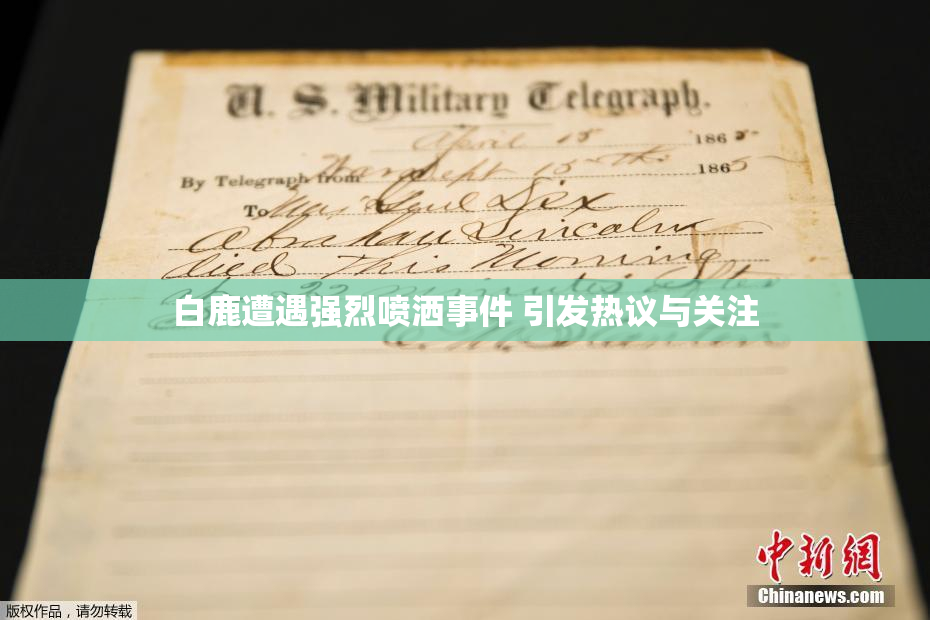 U. S. Military Telegraph.
April 15 1865.
By Telegraph from War Dept 15th 1865
To Maj Genl Dix
Abraham Lincoln
died This Morning
22 minutes after
白鹿遭遇强烈喷洒事件 引发热议与关注
E. M. Stanton
中新网
Chinanews.com
版权作品，请勿转载